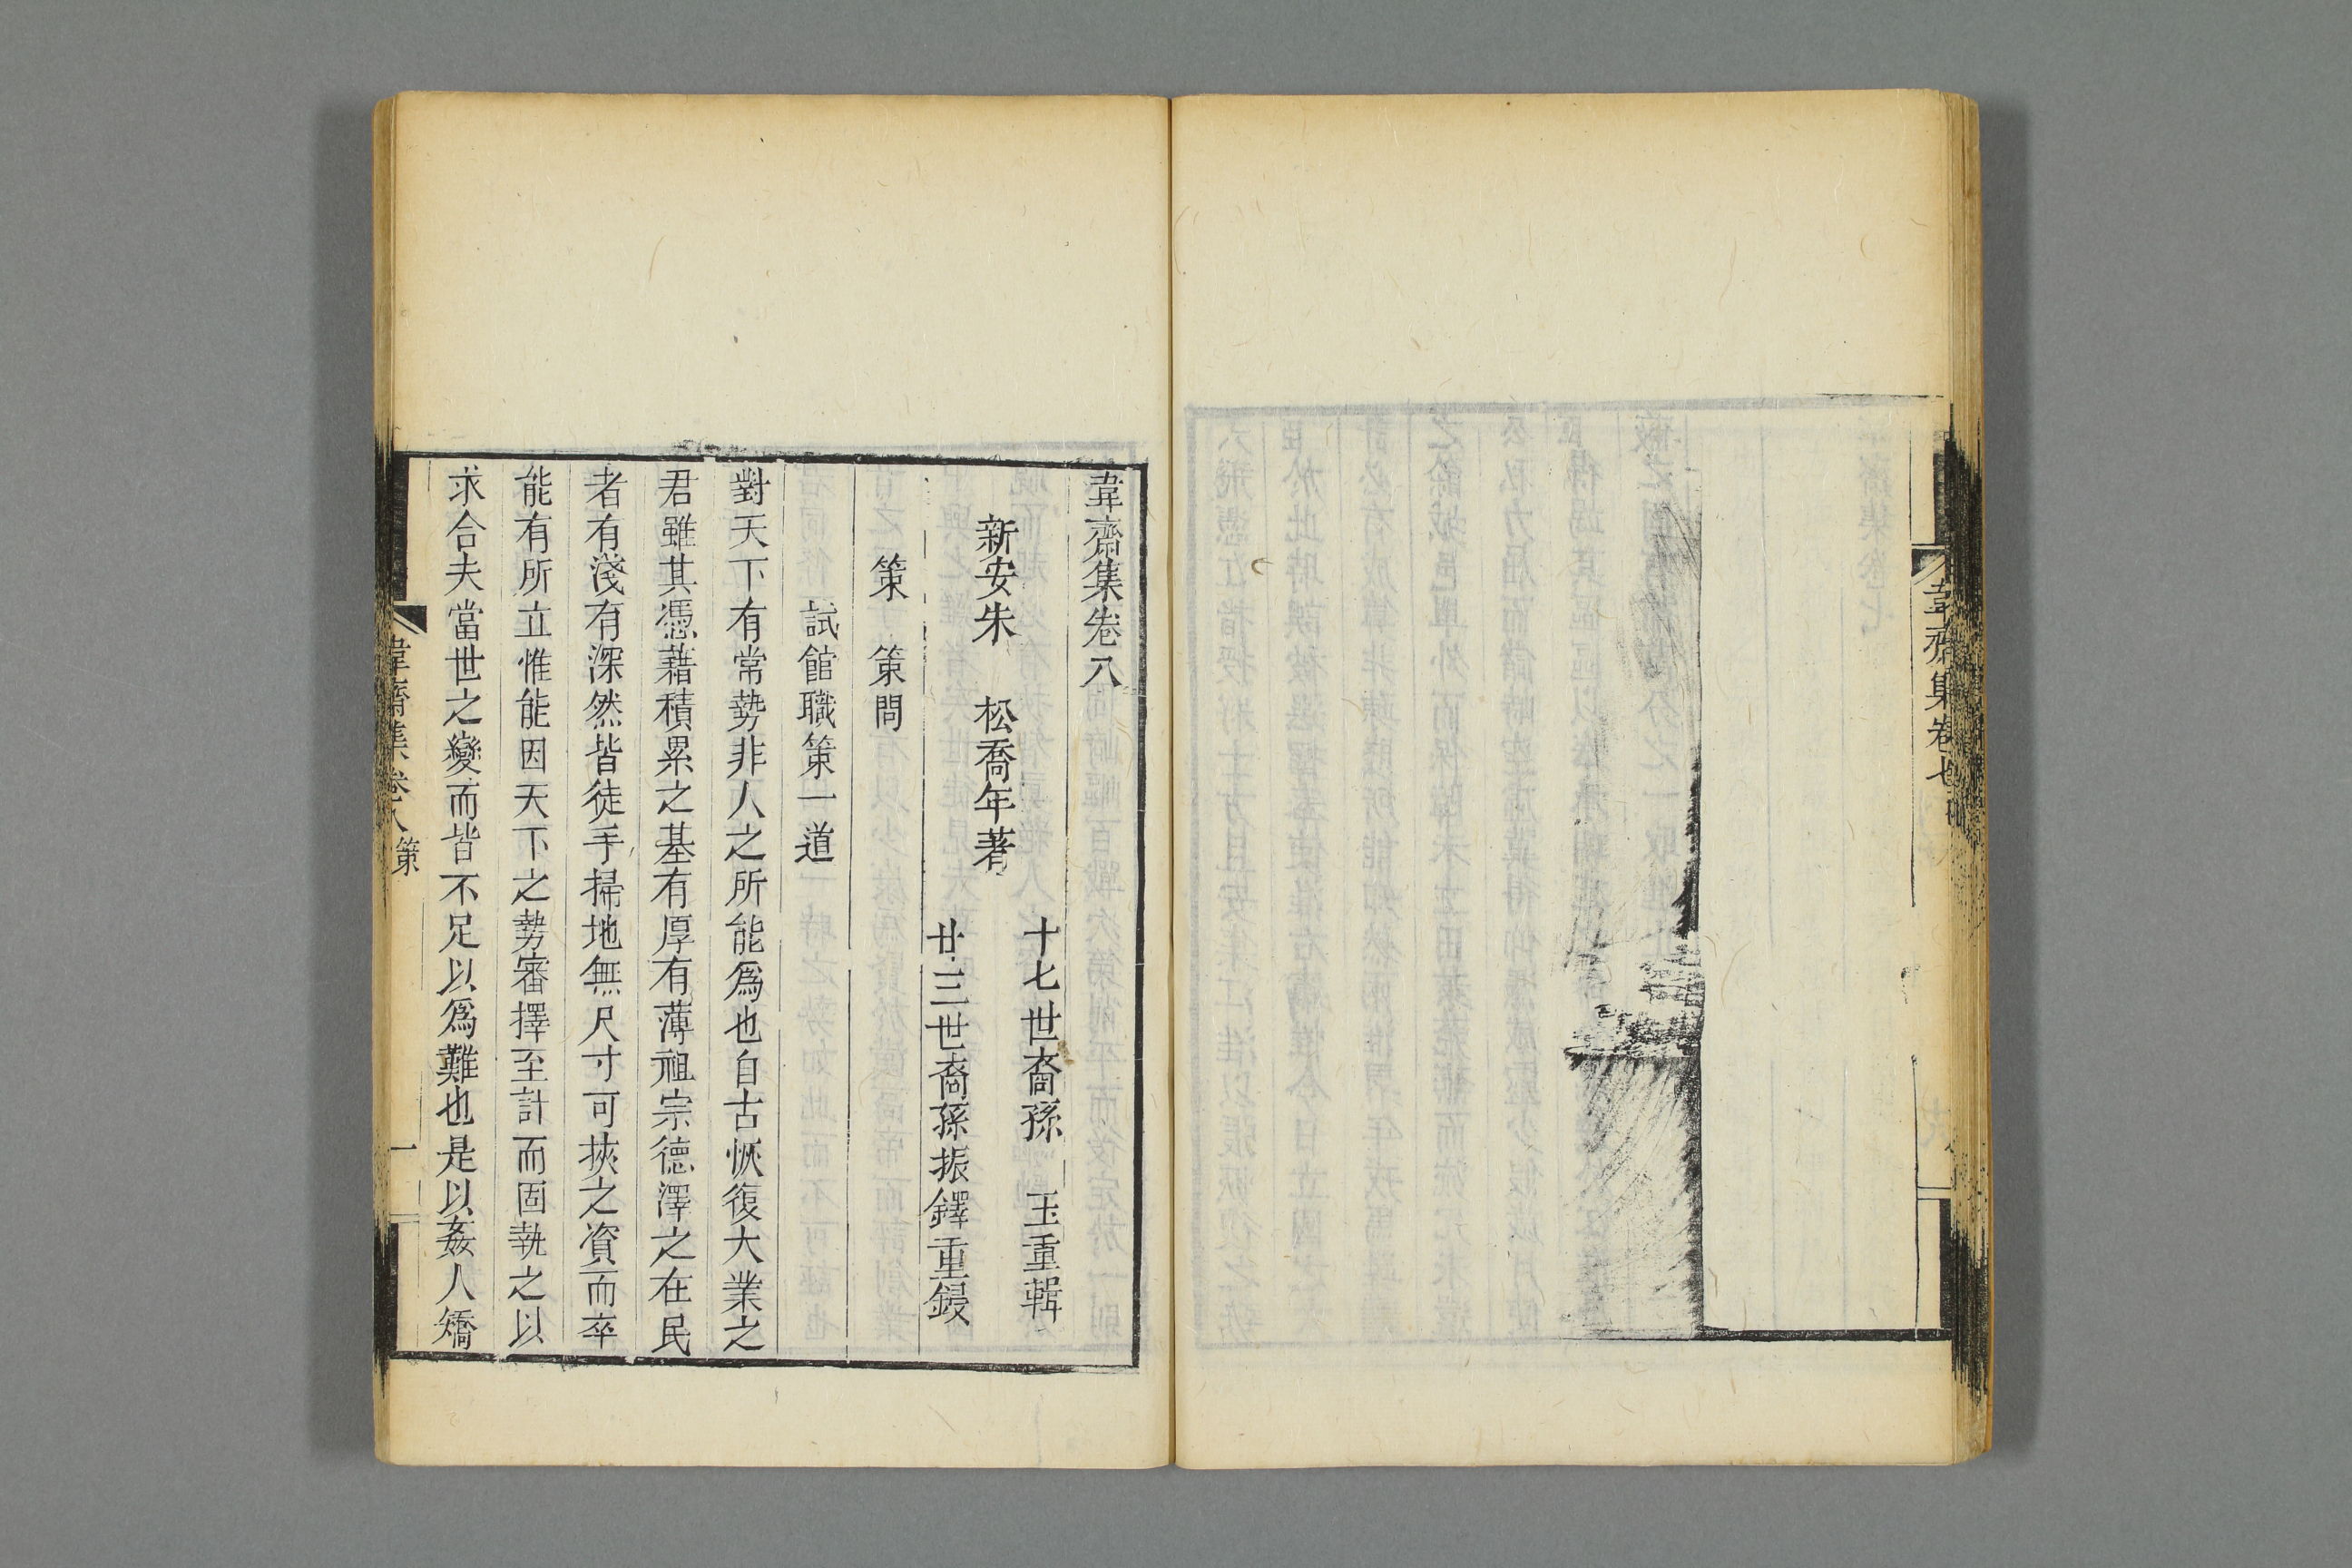 韋齋集卷七
韋齋集卷八
十七世裔孫　玉重輯
新安朱　松喬年著
廿三世裔孫振鐸重鋟
策　策問
試館職策一道
對天下有常勢非人之所能爲也自古恢復大業之
君雖其憑藉積累之基有厚有薄祖宗德澤之在民
者有淺有深然皆徒手掃地無尺寸可挾之資而卒
能有所立惟能因天下之勢審擇至計而固執之以
求合夫當世之變而皆不足以爲難也是以姦人矯
韋齋集卷八 策
一